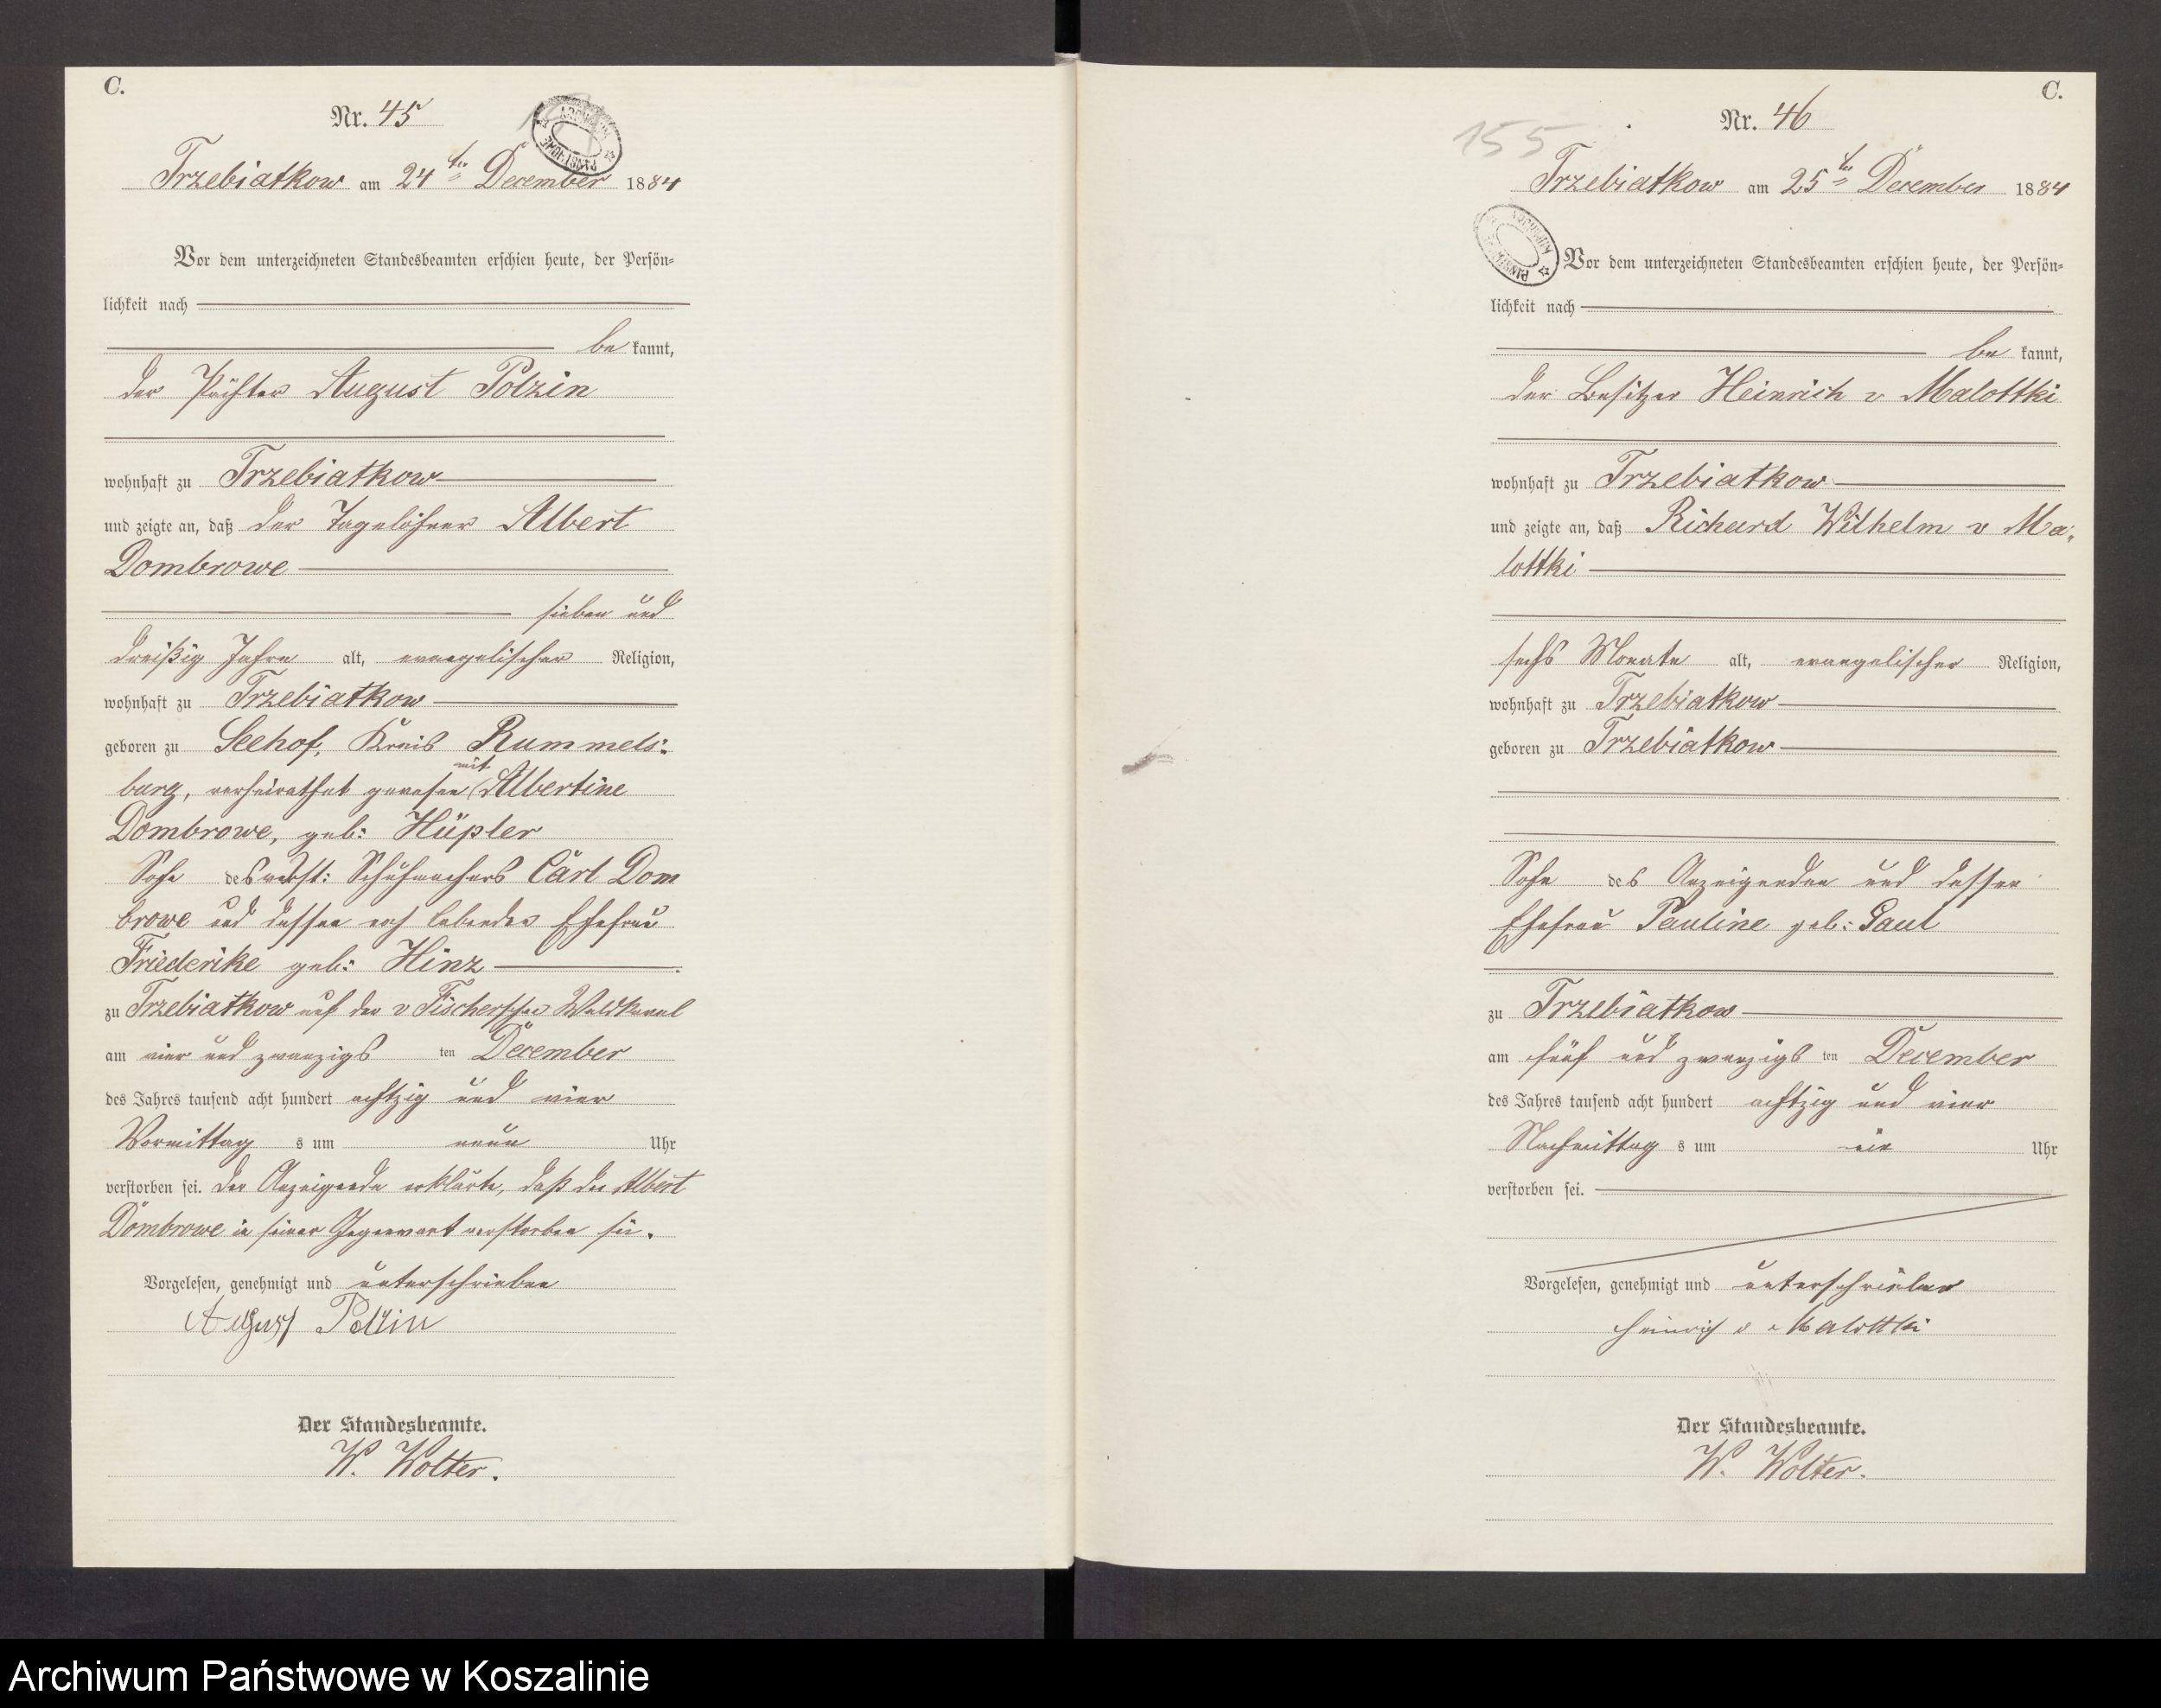 C.
Nr. 45
Trzebiatkow am 24ten December 1884
Vor dem unterzeichneten Standesbeamten erschien heute, der Persön-
lichkeit nach
be kannt,
der Pächter August Polzin
wohnhaft zu Trzebiatkow
und zeigte an, daß der Tagelöhner Albert
Dombrowe
sieben und
dreißig Jahre alt, evangelischer Religion,
wohnhaft zu Trzebiatkow
geboren zu Seehof, Kreis Rummels-
burg, verheirathet gewesen mit Albertine
Dombrowe, geb: Hüpler
Sohn des verst: Schuhmachers Carl Dom
browe und dessen noch lebender Ehefrau
Friederike geb: Hinz
zu Trzebiatkow auf der v Fischerschen
am vier und zwanzigs ten December
des Jahres tausend acht hundert achtzig und vier
Vormittag s um neun Uhr
verstorben sei. Der Anzeigende erklärte, daß der Albert
Dombrowe in seiner Gegenwart verstorben sei.
Vorgelesen, genehmigt und unterschrieben
August Polzin
Der Standesbeamte.
W. Wolter.
C.
Nr. 46
155
Trzebiatkow am 25ten December 1884
Vor dem unterzeichneten Standesbeamten erschien heute, der Persön-
lichkeit nach
be kannt,
der Besitzer Heinrich v Malottki
wohnhaft zu Trzebiatkow
und zeigte an, daß Richard Wilhelm v Ma-
lottki
sechs Monate alt, evangelischer Religion,
wohnhaft zu Trzebiatkow
geboren zu Trzebiatkow
Sohn des Anzeigenden und dessen
Ehefrau Pauline geb: Paul
zu Trzebiatkow
am fünf und zwanzigs ten December
des Jahres tausend acht hundert achtzig und vier
Nachmittag s um ein Uhr
verstorben sei.
Vorgelesen, genehmigt und unterschrieben
Heinrich v Malottki
Der Standesbeamte.
W. Wolter.
Archiwum Państwowe w Koszalinie